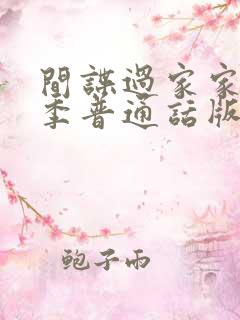 間諜過家家
季普通話版
鲍子雨